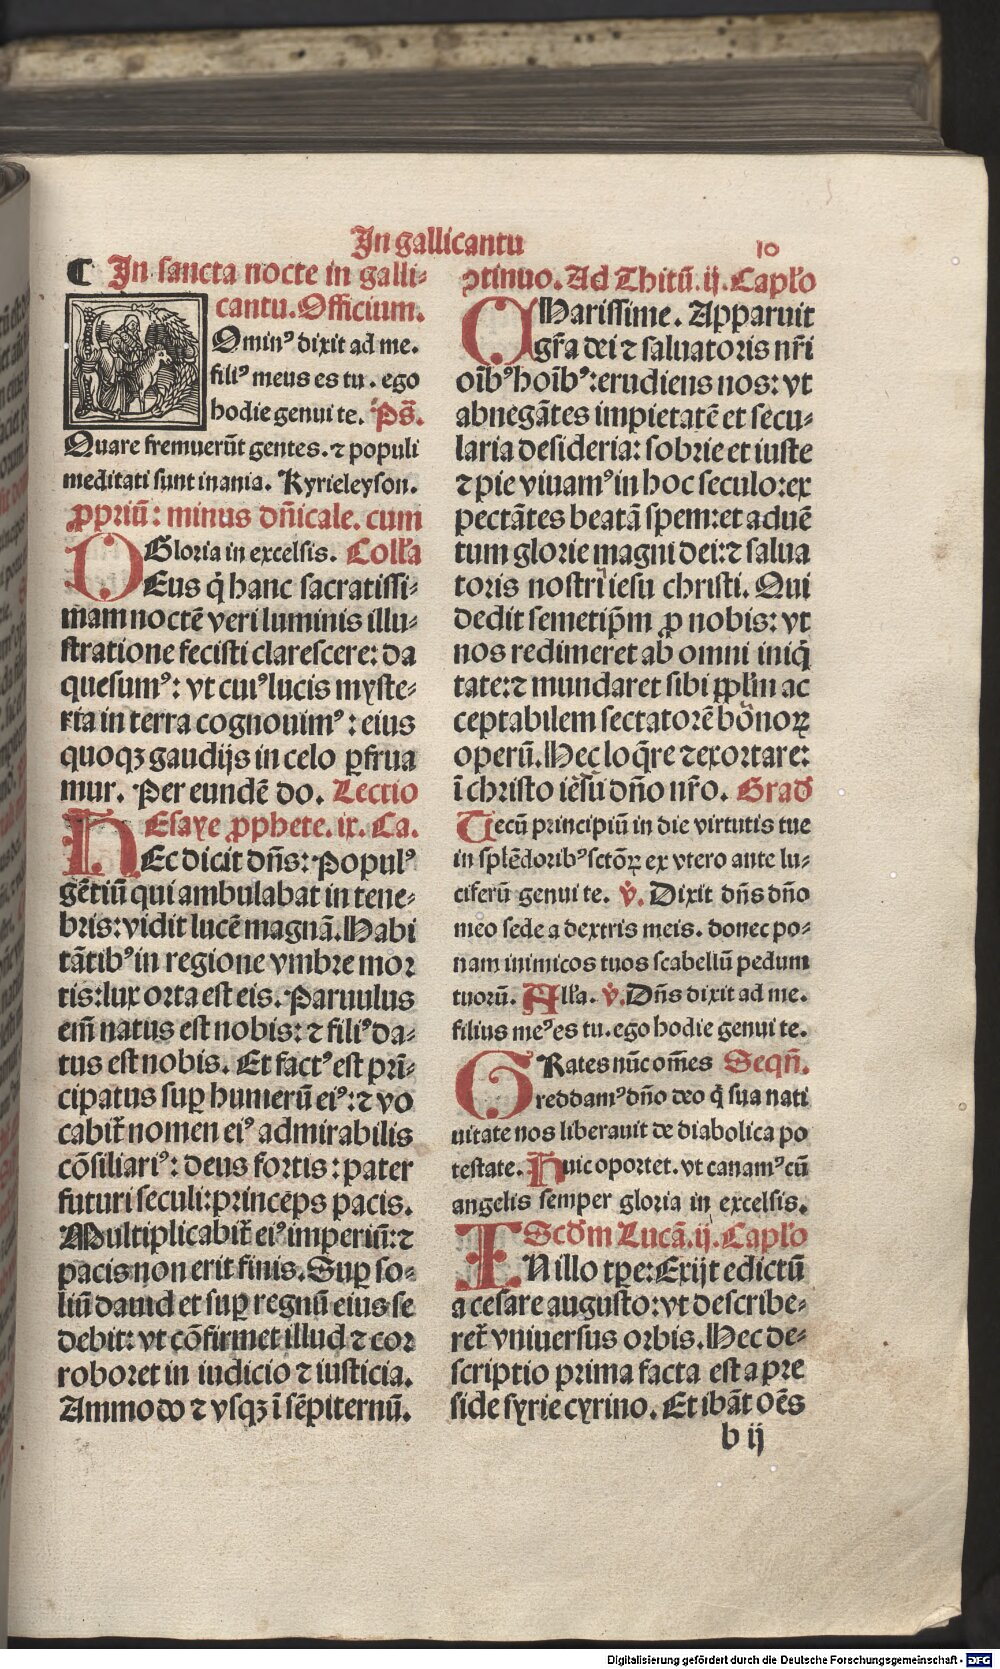 In gallicantu
10
¶ In sancta nocte in galli⸗
cantu. Officium.
Ominꝰ dixit ad me.
filiꝰ meus es tu. ego
hodie genui te. Ps̄.
Quare fremuerūt gentes. ⁊ populi
meditati sunt inania. Kyrieleyson.
ꝓpriū: minus dn̄icale. cum
Gloria in excelsis. Coll̄a
DEus q̇ hanc sacratissi⸗
mam noctē veri luminis illu⸗
stratione fecisti clarescere: da
quesumꝰ: vt cuiꝰ lucis myste⸗
ria in terra cognouimꝰ: eius
quoqꝫ gaudijs in celo ꝑfrua
mur. Per eundē do. Lectio
Esaye ꝓphete. ix. Ca.
HEc dicit dn̄s: Populꝰ
gētiū qui ambulabat in tene⸗
bris: vidit lucē magnā. Habi
tātibꝰ in regione vmbre mor
tis: lux orta est eis. Paruulus
em̄ natus est nobis: ⁊ filiꝰ da⸗
tus est nobis. Et factꝰ est prī⸗
cipatus suꝑ humerū eiꝰ: ⁊ vo
cabit̄ nomen eiꝰ admirabilis
cōsiliariꝰ: deus fortis: pater
futuri seculi: princeps pacis.
Multiplicabit̄ eiꝰ imperiū: ⁊
pacis non erit finis. Suꝑ so⸗
liū dauid et suꝑ regnū eius se
debit: vt cōfirmet illud ⁊ cor
roboret in iudicio ⁊ iusticia.
Ammodo ⁊ vsqꝫ ī sēpiternū.
ꝯtinuo. Ad Thitū. ij. Capl̄o
CHarissime. Apparuit
gr̄a dei ⁊ saluatoris nr̄i
oīb̄ꝰ hoīb̄ꝰ: erudiens nos: vt
abnegātes impietatē et secu⸗
laria desideria: sobrie et iuste
⁊ pie viuamꝰ in hoc seculo: ex
pectātes beatā spem: et aduē
tum glorie magni dei: ⁊ salua
toris nostri iesu christi. Qui
dedit semetip̄m ꝓ nobis: vt
nos redimeret ab omni iniq̇
tate: ⁊ mundaret sibi ppl̄m ac
ceptabilem sectatorē bonoꝝ
operū. Hec loq̄re ⁊ exortare:
ī christo iēsu dn̄o nr̄o. Grad̄
Tecū principiū in die virtutis tue
in splēdoribꝰ sctōꝝ ex vtero ante lu⸗
ciferū genui te. ℣. Dixit dn̄s dn̄o
meo sede a dextris meis. donec po⸗
nam inimicos tuos scabellū pedum
tuorū. All̄a. ℣. Dn̄s dixit ad me.
filius meꝰ es tu. ego hodie genui te.
GRates nūc om̄es Seqn̄.
reddamꝰ dn̄o deo q̇ sua nati
uitate nos liberauit de diabolica po
testate. Huic oportet. vt canamꝰ cū
angelis semper gloria in excelsis.
Scdm̄ Lucā. ij. Capl̄o
IN illo tꝑe: Exijt edictū
a cesare augusto: vt describe⸗
ret̄ vniuersus orbis. Hec de⸗
scriptio prima facta est a pre
side syrie cyrino. Et ibāt oēs
b ij
Digitalisierung gefördert durch die Deutsche Forschungsgemeinschaft - DFG